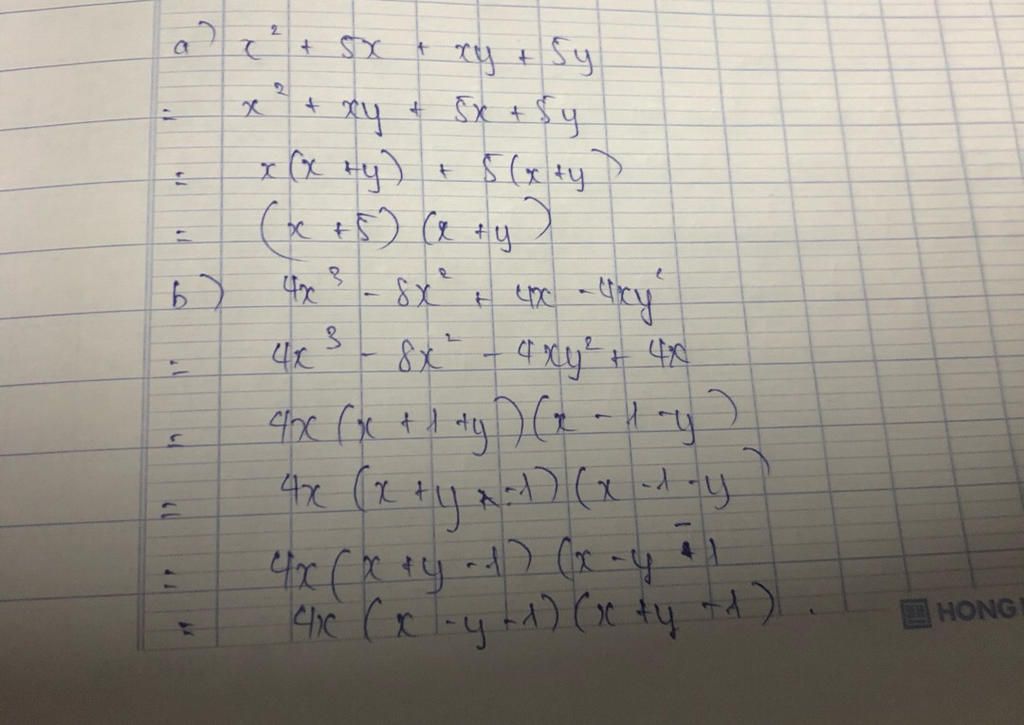 a) x² + 5x + xy + 5y
= x² + xy + 5x + 5y
= x(x + y) + 5(x + y)
= (x + 5) (x + y)
b) 4x³ - 8x² + 4x - 4xy²
= 4x³ - 8x² - 4xy² + 4x
= 4x (x + 1 + y) (x - 1 - y)
= 4x (x + y - 1) (x - 1 - y)
= 4x (x + y - 1) (x - y - 1
= 4x (x - y + 1) (x + y + 1) .
HONG